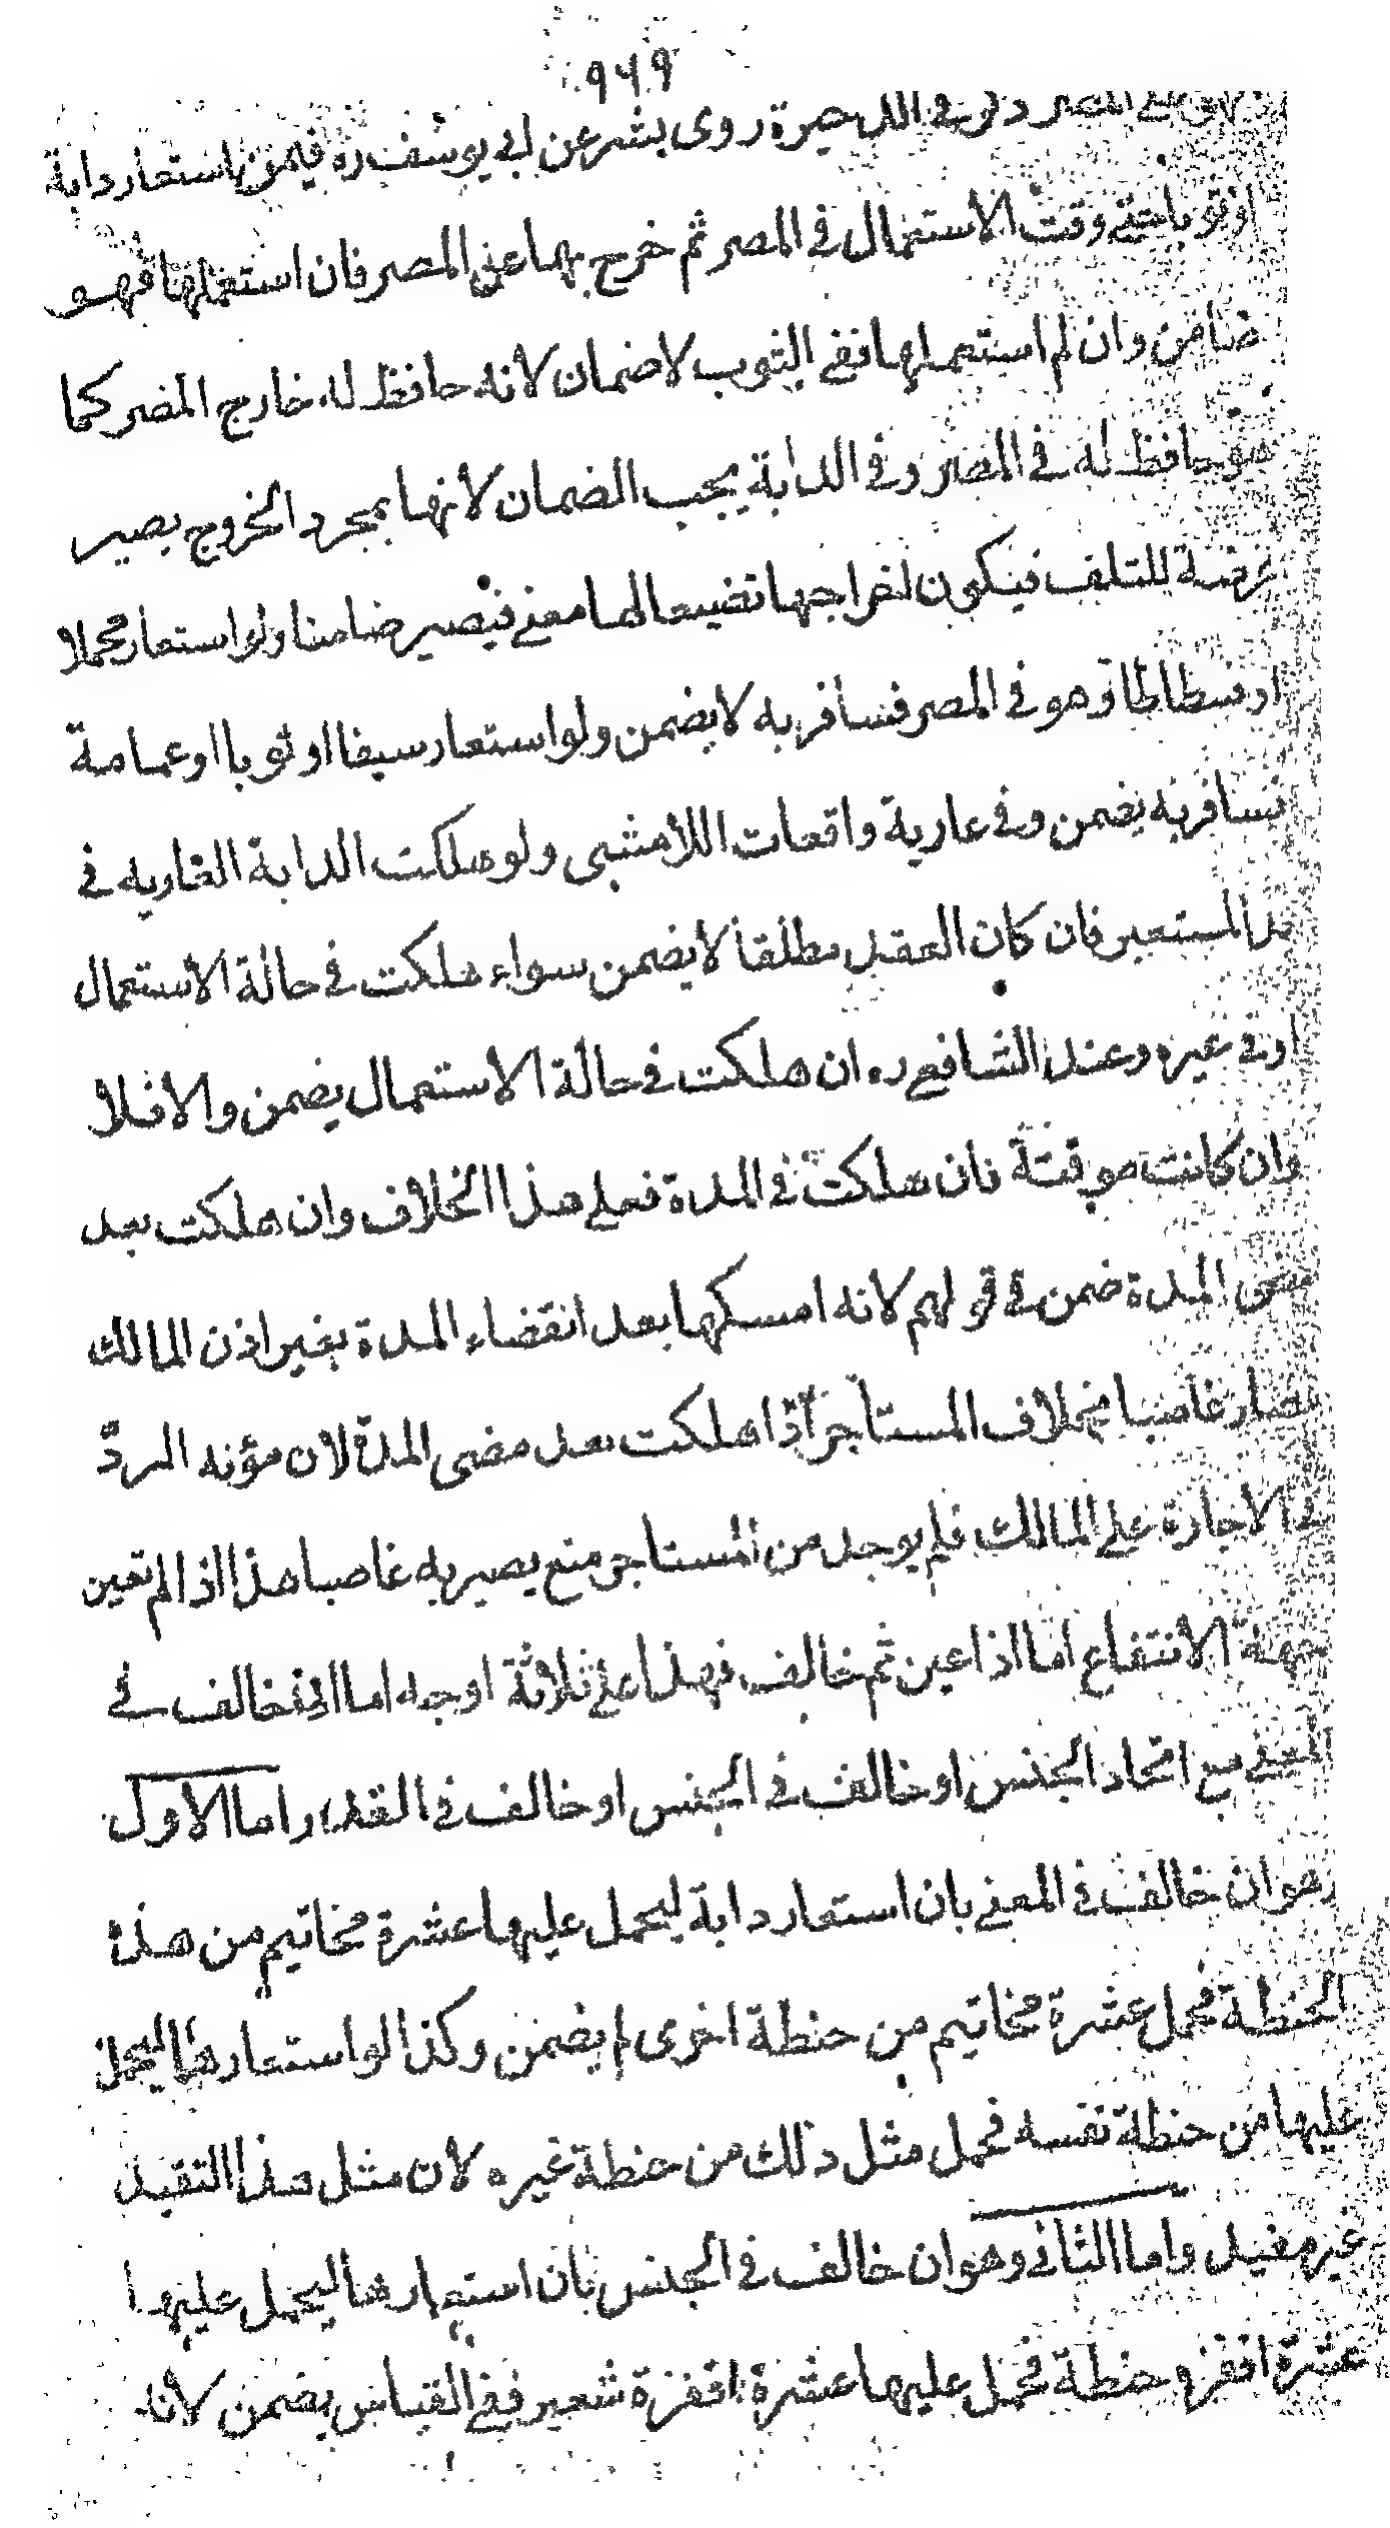 ٩٦٩
المصر وفي الذخيرة روى بشر عن ابي يوسف ره فيمن استعار دابة
او ثوبا وقت الاستعمال في المصر ثم خرج بهما عن المصر فان استعملها فهو
ضامن وان لم استعملها ففي الثوب لا ضمان لانه حافظ له خارج المصر كما
هو حافظ له في المصر وفي الدابة يجب الضمان لانها بمجرد الخروج يصير
عرضة للتلف فيكون اخراجها تضييعا لها معنى فيصير ضامنا ولو استعار محملا
او فسطاطا وهو في المصر فسافر به لا يضمن ولو استعار سيفا او ثوبا او عمامة
فسافر به يضمن وفي عارية واقعات اللامشي ولو هلكت الدابة العاريه في
يد المستعير فان كان العقد مطلقا لا يضمن سواء هلكت في حالة الاستعمال
او في غيره وعند الشافعي ره ان هلكت في حالة الاستعمال يضمن والا فلا
وان كانت موقتة فان هلكت في المدة فعلى هذا الخلاف وان هلكت بعد
مضى المدة ضمن في قولهم لانه امسكها بعد انقضاء المدة بغير اذن المالك
فصار غاصبا بخلاف المستأجر اذا هلكت بعد مضى المدة لان مؤنه الردّ
في الاجارة على المالك فلم يوجد من المستاجر منع يصير به غاصبا هذا اذا لم تعين
جهة الانتفاع اما اذا عين ثم خالف فهذا على ثلاثة اوجه اما ان خالف في
المعنى مع اتحاد الجنس او خالف في الجنس او خالف في القدر اما الاول
وهو ان خالف في المعنى بان استعار دابة ليحمل عليها عشرة مخاتيم من هذه
الحنطة فحمل عشرة مخاتيم من حنطة اخرى لم يضمن وكذا لو استعارها ليحمل
عليها من حنطة نفسه فحمل مثل ذلك من حنطة غيره لان مثل هذا التقيد
غير مفيد واما الثاني وهو ان خالف في الجنس بان استعارها ليحمل عليها
عشرة اقفزة حنطة فحمل عليها عشرة اقفزة شعير ففي القياس يضمن لانه